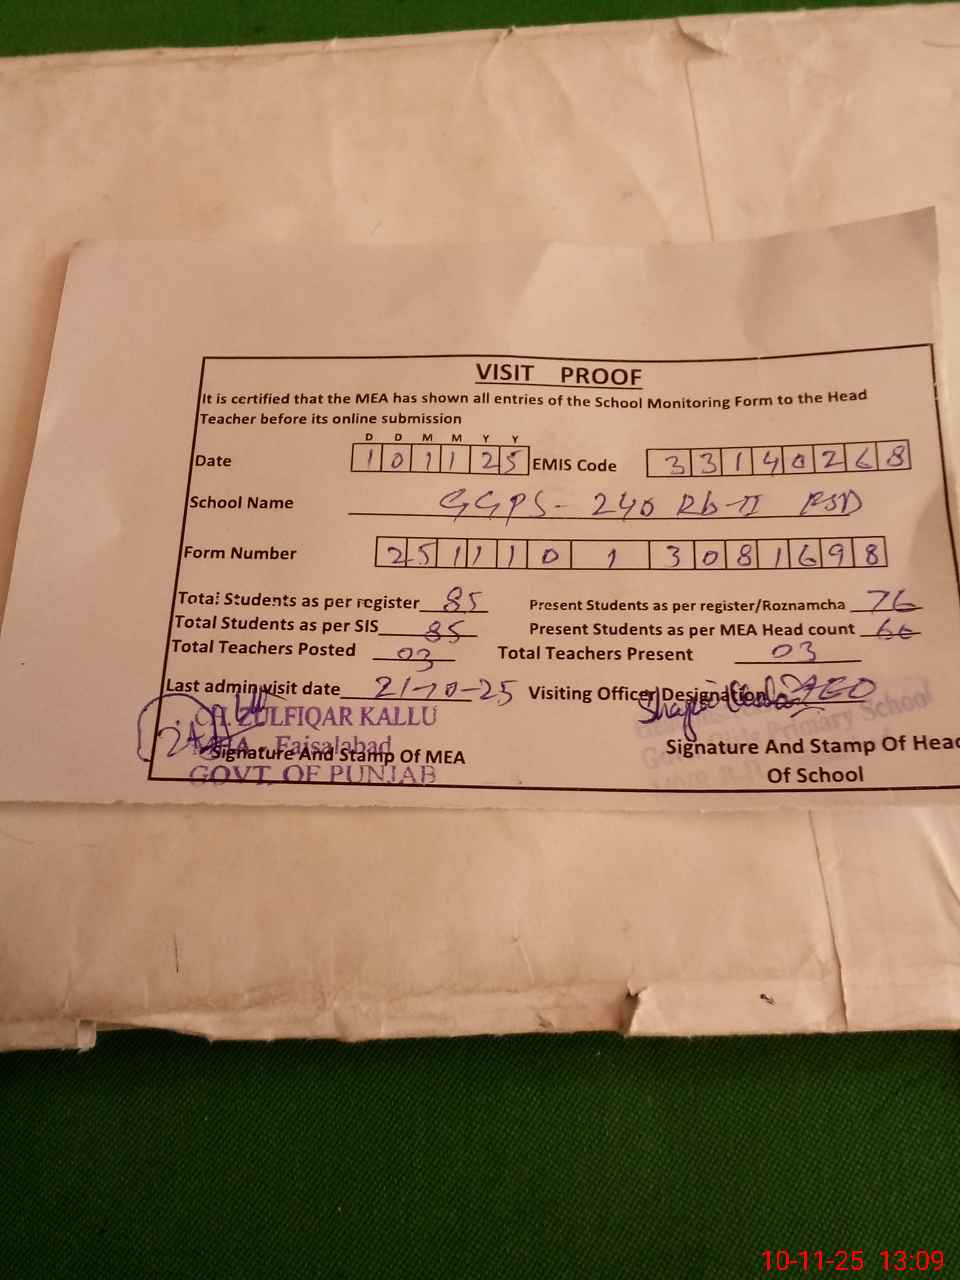 VISIT PROOF
It is certified that the MEA has shown all entries of the School Monitoring Form to the Head
Teacher before its online submission
D D M M Y Y
Date 101125 EMIS Code 33140268
School Name GGPS - 240 Rb-II FSD
Form Number 25111013081698
Total Students as per register 85 Present Students as per register/Roznamcha 76
Total Students as per SIS 85 Present Students as per MEA Head count 66
Total Teachers Posted 03 Total Teachers Present 03
Last admin visit date 21-10-25 Visiting Officer Designation AEO
CH. ZULFIQAR KALLU
MEA - Faisalabad
GOVT. OF PUNJAB
Signature And Stamp Of MEA
Primary School
Signature And Stamp Of Head
Of School
10-11-25 13:09